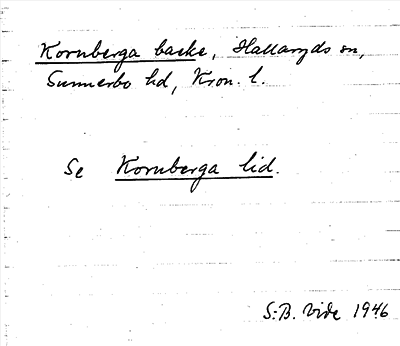 Kornberga backe, Hallaryds sn,
Sunnerbo hd, Kron. l.
Se Kornberga lid.
S:B. Vide 1946